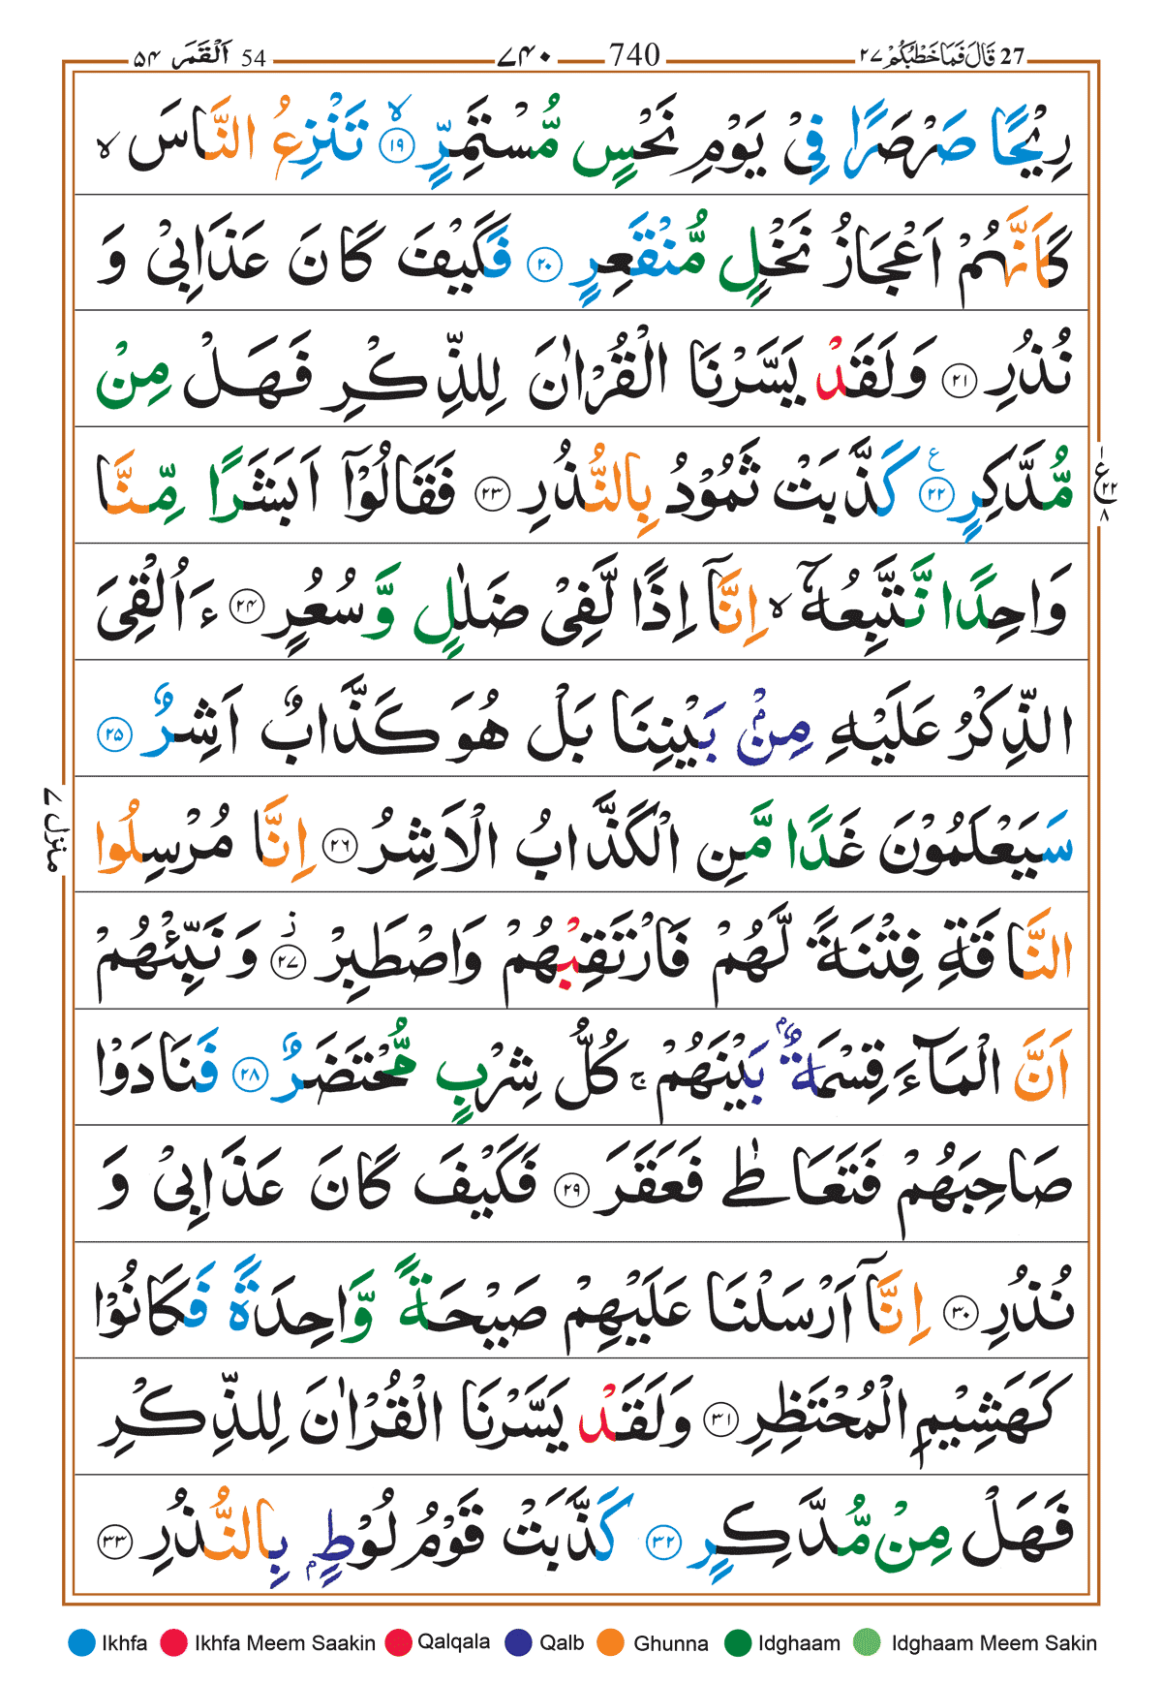 27 قَالَ فَمَا خَطْبُكُمْ ٢٧
740 ٧٤٠
54 اَلْقَمَر ٥٤
رِيْحًا صَرْصَرًا فِيْ يَوْمِ نَحْسٍ مُّسْتَمِرٍّ ۙ‏ ١٩ تَنْزِعُ النَّاسَ ۙ
كَاَنَّهُمْ اَعْجَازُ نَخْلٍ مُّنْقَعِرٍ ٢٠ فَكَيْفَ كَانَ عَذَابِيْ وَ
نُذُرِ ٢١ وَلَقَدْ يَسَّرْنَا الْقُرْاٰنَ لِلذِّكْرِ فَهَلْ مِنْ
مُّدَّكِرٍ ٢٢ ع كَذَّبَتْ ثَمُوْدُ بِالنُّذُرِ ٢٣ فَقَالُوْٓا اَبَشَرًا مِّنَّا
ع ٢٢ ٨
وَاحِدًا نَّتَّبِعُهٗٓ ۙ اِنَّآ اِذًا لَّفِيْ ضَلٰلٍ وَّسُعُرٍ ٢٤ ءَاُلْقِيَ
الذِّكْرُ عَلَيْهِ مِنْۢ بَيْنِنَا بَلْ هُوَ كَذَّابٌ اَشِرٌ ٢٥
سَيَعْلَمُوْنَ غَدًا مَّنِ الْكَذَّابُ الْاَشِرُ ٢٦ اِنَّا مُرْسِلُوا
منزل ٧
النَّاقَةِ فِتْنَةً لَّهُمْ فَارْتَقِبْهُمْ وَاصْطَبِرْ ز ٢٧ وَنَبِّئْهُمْ
اَنَّ الْمَآءَ قِسْمَةٌۢ بَيْنَهُمْ ۚ كُلُّ شِرْبٍ مُّحْتَضَرٌ ٢٨ فَنَادَوْا
صَاحِبَهُمْ فَتَعَاطٰى فَعَقَرَ ٢٩ فَكَيْفَ كَانَ عَذَابِيْ وَ
نُذُرِ ٣٠ اِنَّآ اَرْسَلْنَا عَلَيْهِمْ صَيْحَةً وَّاحِدَةً فَكَانُوْا
كَهَشِيْمِ الْمُحْتَظِرِ ٣١ وَلَقَدْ يَسَّرْنَا الْقُرْاٰنَ لِلذِّكْرِ
فَهَلْ مِنْ مُّدَّكِرٍ ٣٢ كَذَّبَتْ قَوْمُ لُوْطٍۭ بِالنُّذُرِ ٣٣
Ikhfa Ikhfa Meem Saakin Qalqala Qalb Ghunna Idghaam Idghaam Meem Sakin